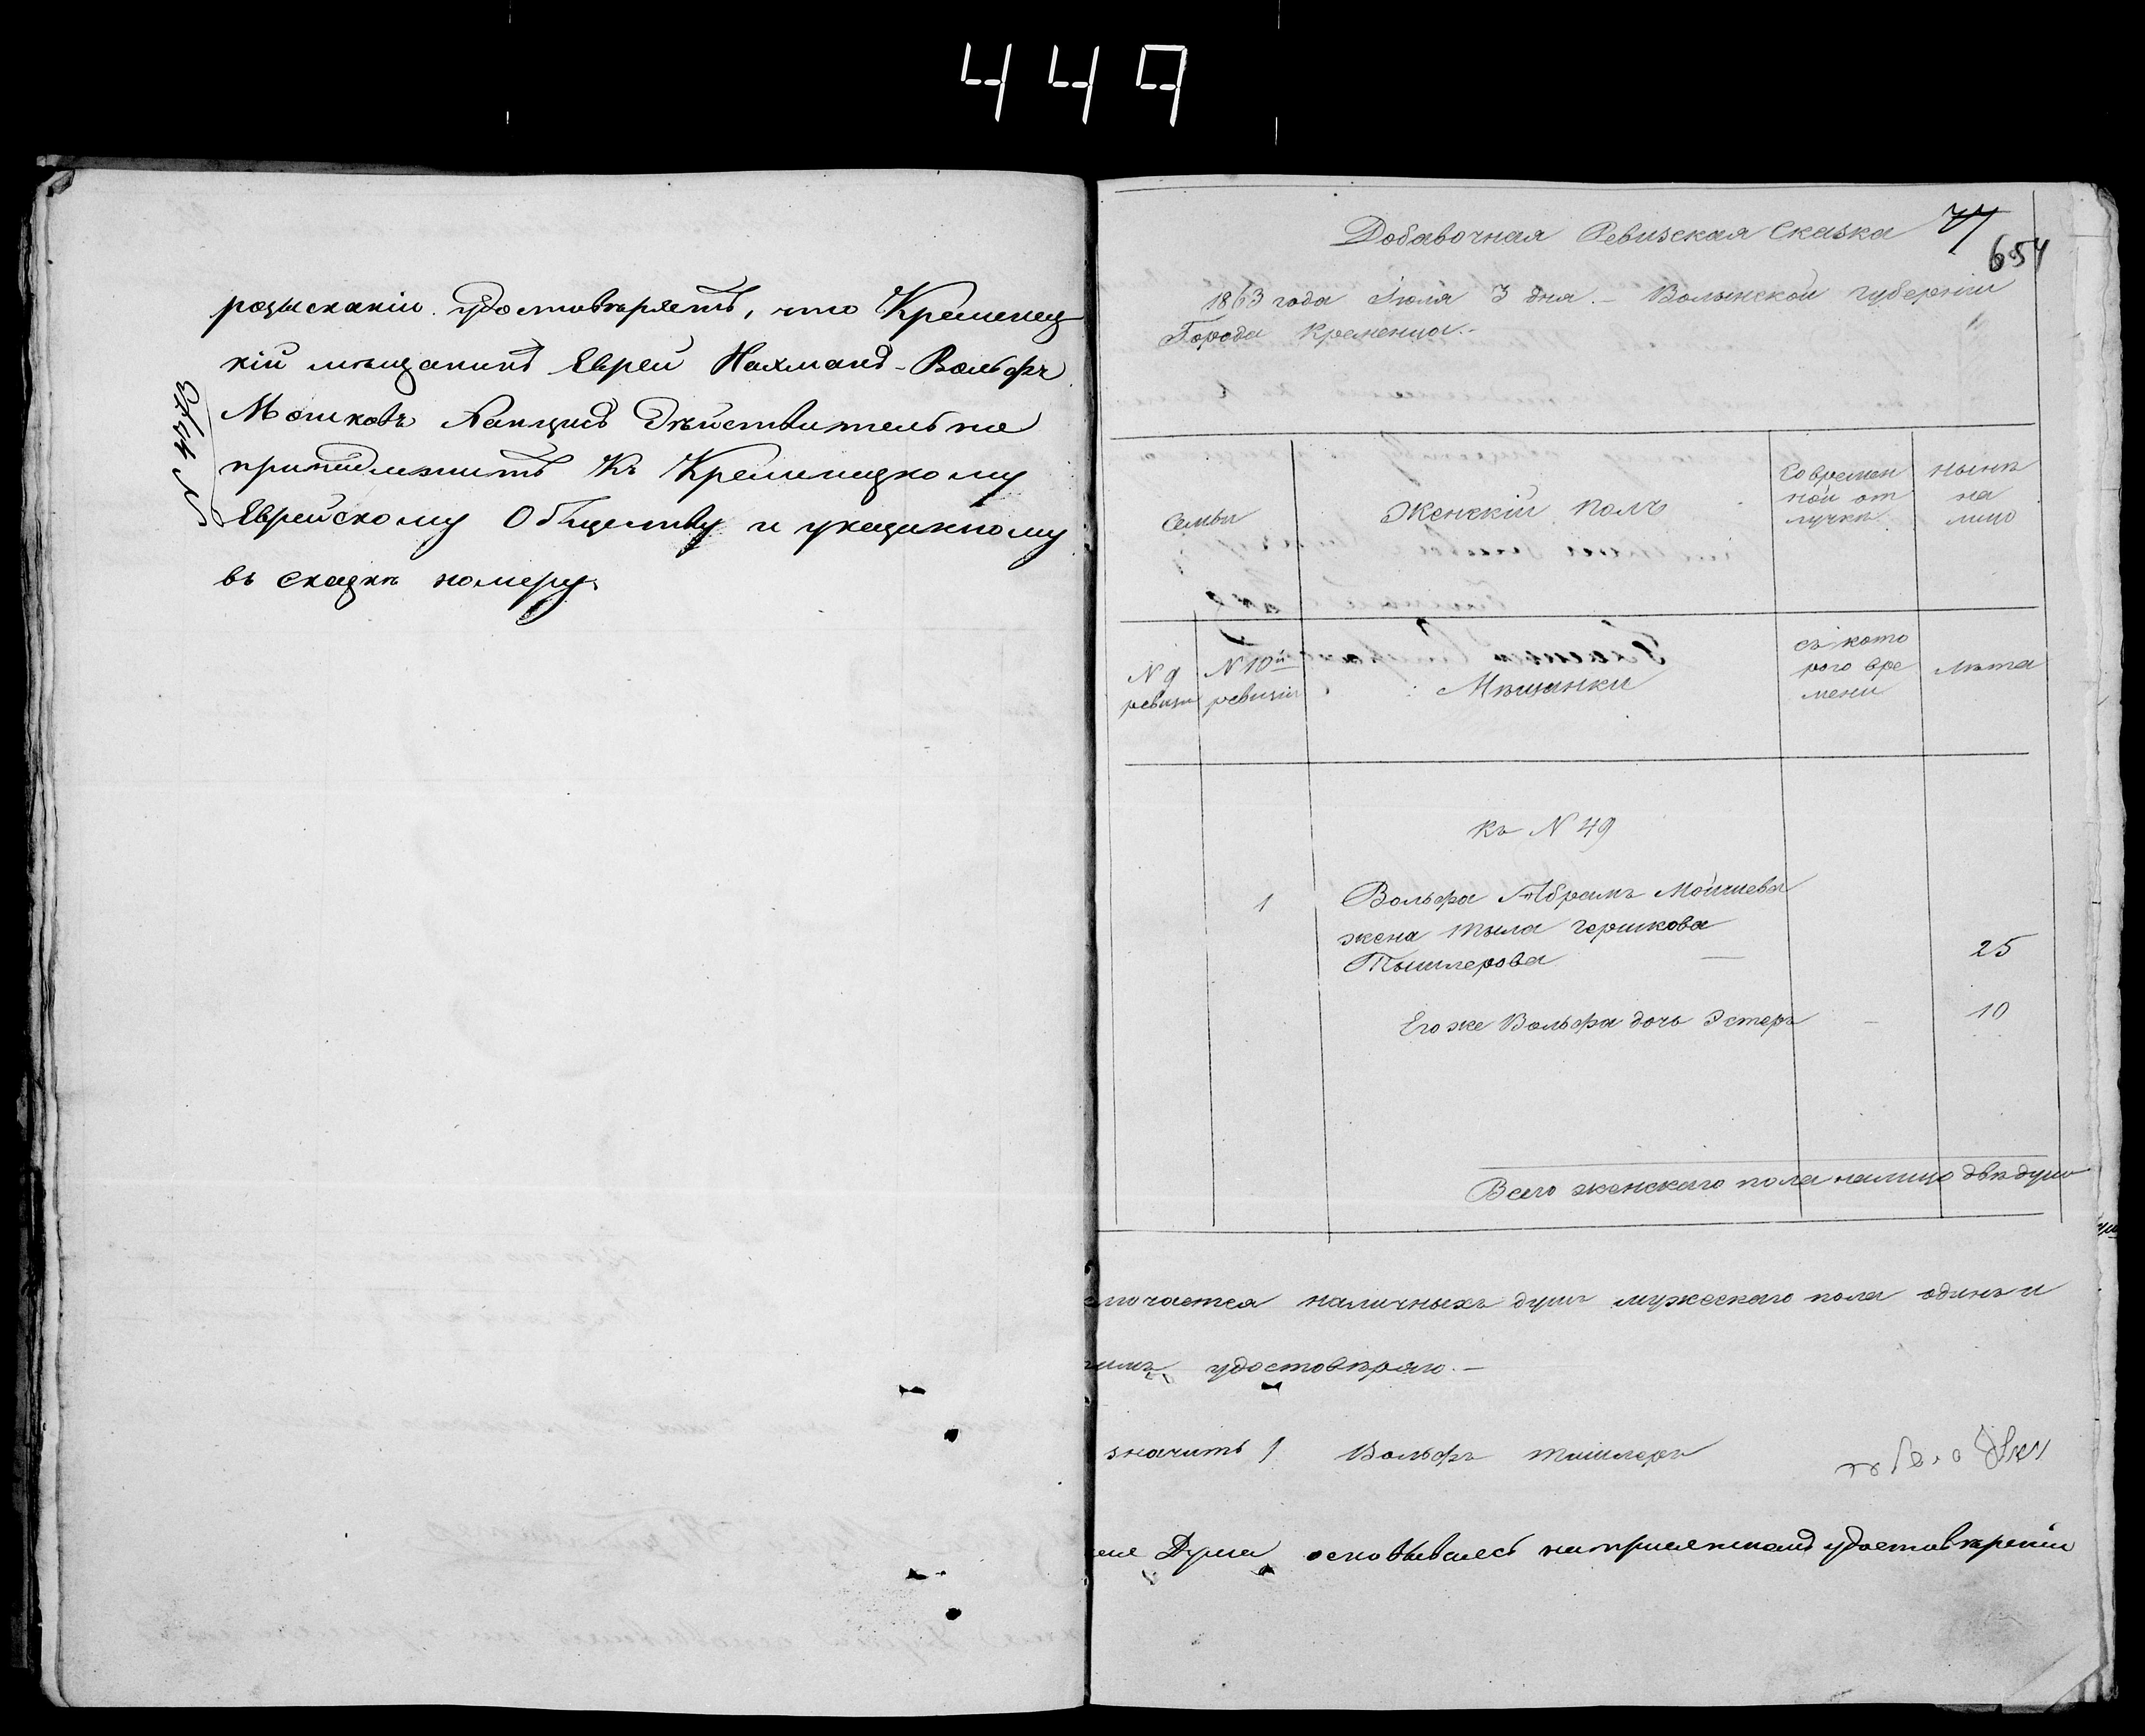 449
розысканіи удостовѣряетъ, что Кременец
кій мѣщанинъ Еврей Нахманъ-Вольфъ
Мошковъ Ланцисъ Дѣйствительно
принадлежитъ Къ Кременецкому
Еврейскому Обществу и указанному
въ сказкѣ номеру.
Добавочная Ревизская Сказка
77
654
1863 года Іюля 3 дня. – Волынской губерніи
Города Кременца. -
Семьи
Женскій полъ
Во времен
ной от
лучкѣ
нынѣ
на
лицо
N 9
ревизіи
N 10й
ревизіи
Мѣщанки
съ кото
рого вре
мени
лѣта
Къ N 49
1
Вольфа Абрамъ Мойшева
жена Тыла Гершкова
Тышлерова — 25
Его же Вольфа дочь Эстеръ – 10
Всего женскаго пола налицо двѣ души
лючается наличныхъ душъ мужескаго пола одинъ и
удостовѣряю. –
значитъ 1 Вольфъ тишлеръ
Дума основываясь на присяжномъ удостовѣреніи